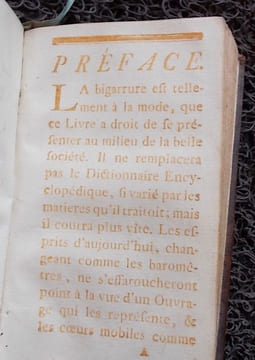 PRÉFACE.
LA bigarrure est telle-
ment à la mode, que
ce Livre a droit de se pré-
senter au milieu de la belle
société. Il ne remplacera
pas le Dictionnaire Ency-
clopédique, si varié par les
matieres qu'il traitoit; mais
il courra plus vîte. Les es-
prits d'aujourd'hui, chan-
geant comme les barome-
tres, ne s'effaroucheront
point à la vue d'un Ouvra-
ge qui les représente, &
les cœurs mobiles comme